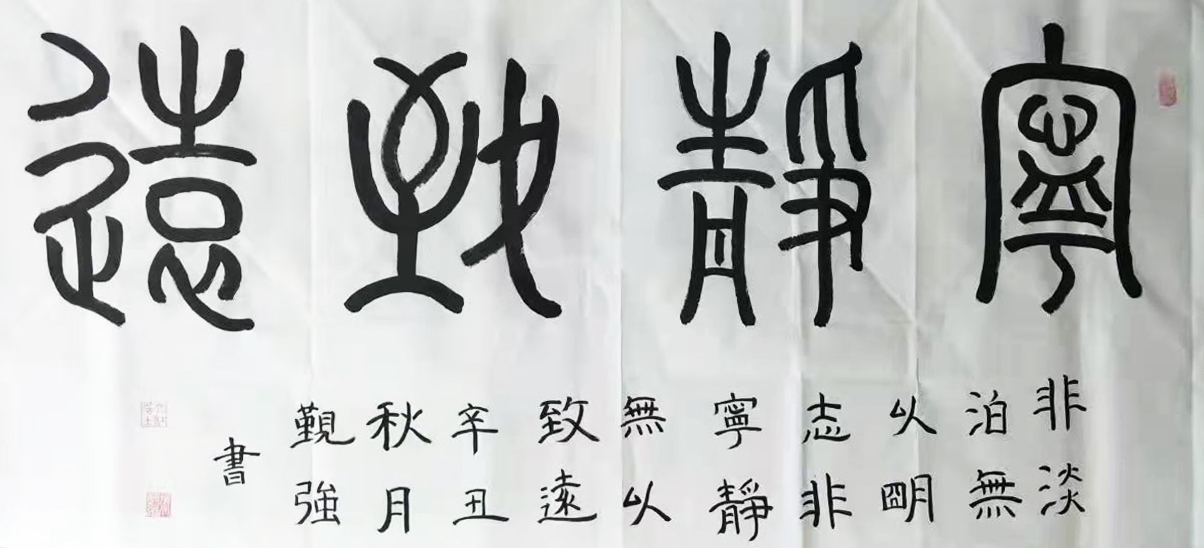 寧靜致遠
非淡
泊無
以明
志非
寧靜
無以
致遠
辛丑
秋月
觐強
書